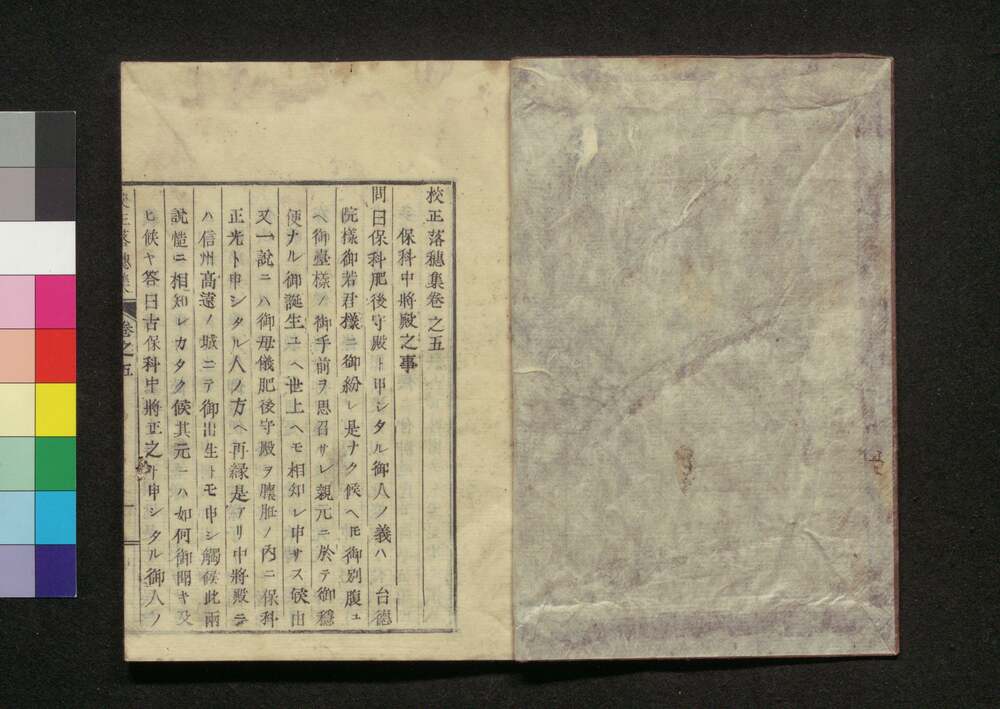 校正落穂集卷之五
保科中將殿之事
問曰保科肥後守殿ト申シタル御人ノ義ハ 台德
院樣御若君樣ニ御紛レ是ナク候ヘ𪜈御別腹ユ
ヘ御臺樣ノ御手前ヲ思召サレ親元ニ於テ御穩
便ナル御誕生ユヘ世上ヘモ相知レ申サス候由
又一說ニハ御母儀肥後守殿ヲ懷胎ノ內ニ保科
正光ト申シタル人ノ方ヘ再緣是アリ中將殿ニ
ハ信州高遠ノ城ニテ御出生トモ申シ觸候此兩
說慥ニ相知レカタク候其元ニハ如何御聞キ及
ヒ候ヤ答曰古保科中將正之ト申シタル御人ノ
校正落穗集 卷之五 一